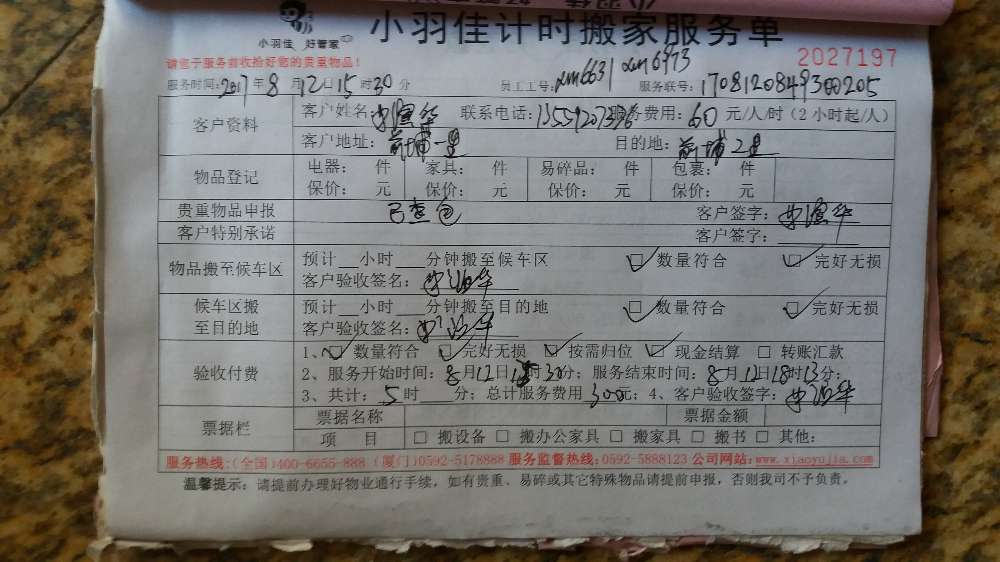 小羽佳计时搬家服务单
小羽佳 好管家
请您于服务前收拾好您的贵重物品!
2027197
服务时间:2017年8月12日15时30分 员工工号:xm6631 xm6973 服务联号:1708120849300205
客户资料 客户姓名: 联系电话: 服务费用:60元/人/时(2小时起/人)
客户地址:前埔一里 目的地:前埔二里
物品登记 电器: 件 家具: 件 易碎品: 件 包裹: 件
保价: 元 保价: 元 保价: 元 保价: 元
贵重物品申报 已查包 客户签字:
客户特别承诺 客户签字:
物品搬至候车区 预计__小时___分钟搬至候车区 ☑数量符合 ☑完好无损
客户验收签名:
候车区搬至目的地 预计__小时___分钟搬至目的地 ☑数量符合 ☑完好无损
客户验收签名:
验收付费 1、☑数量符合 ☑完好无损 ☑按需归位 ☑现金结算 □转账汇款
2、服务开始时间:8月12日15时30分;服务结束时间:8月12日18时13分;
3、共计:5时___分;总计服务费用300元;4、客户验收签字:
票据栏 票据名称 票据金额
项 目 □搬设备 □搬办公家具 □搬家具 □搬书 □其他:
服务热线:(全国)400-6655-888 (厦门)0592-5178888 服务监督热线:0592-5888123 公司网站:www.xiaoyujia.com
温馨提示:请提前办理好物业通行手续,如有贵重、易碎或其它特殊物品请提前申报,否则我司不予负责。